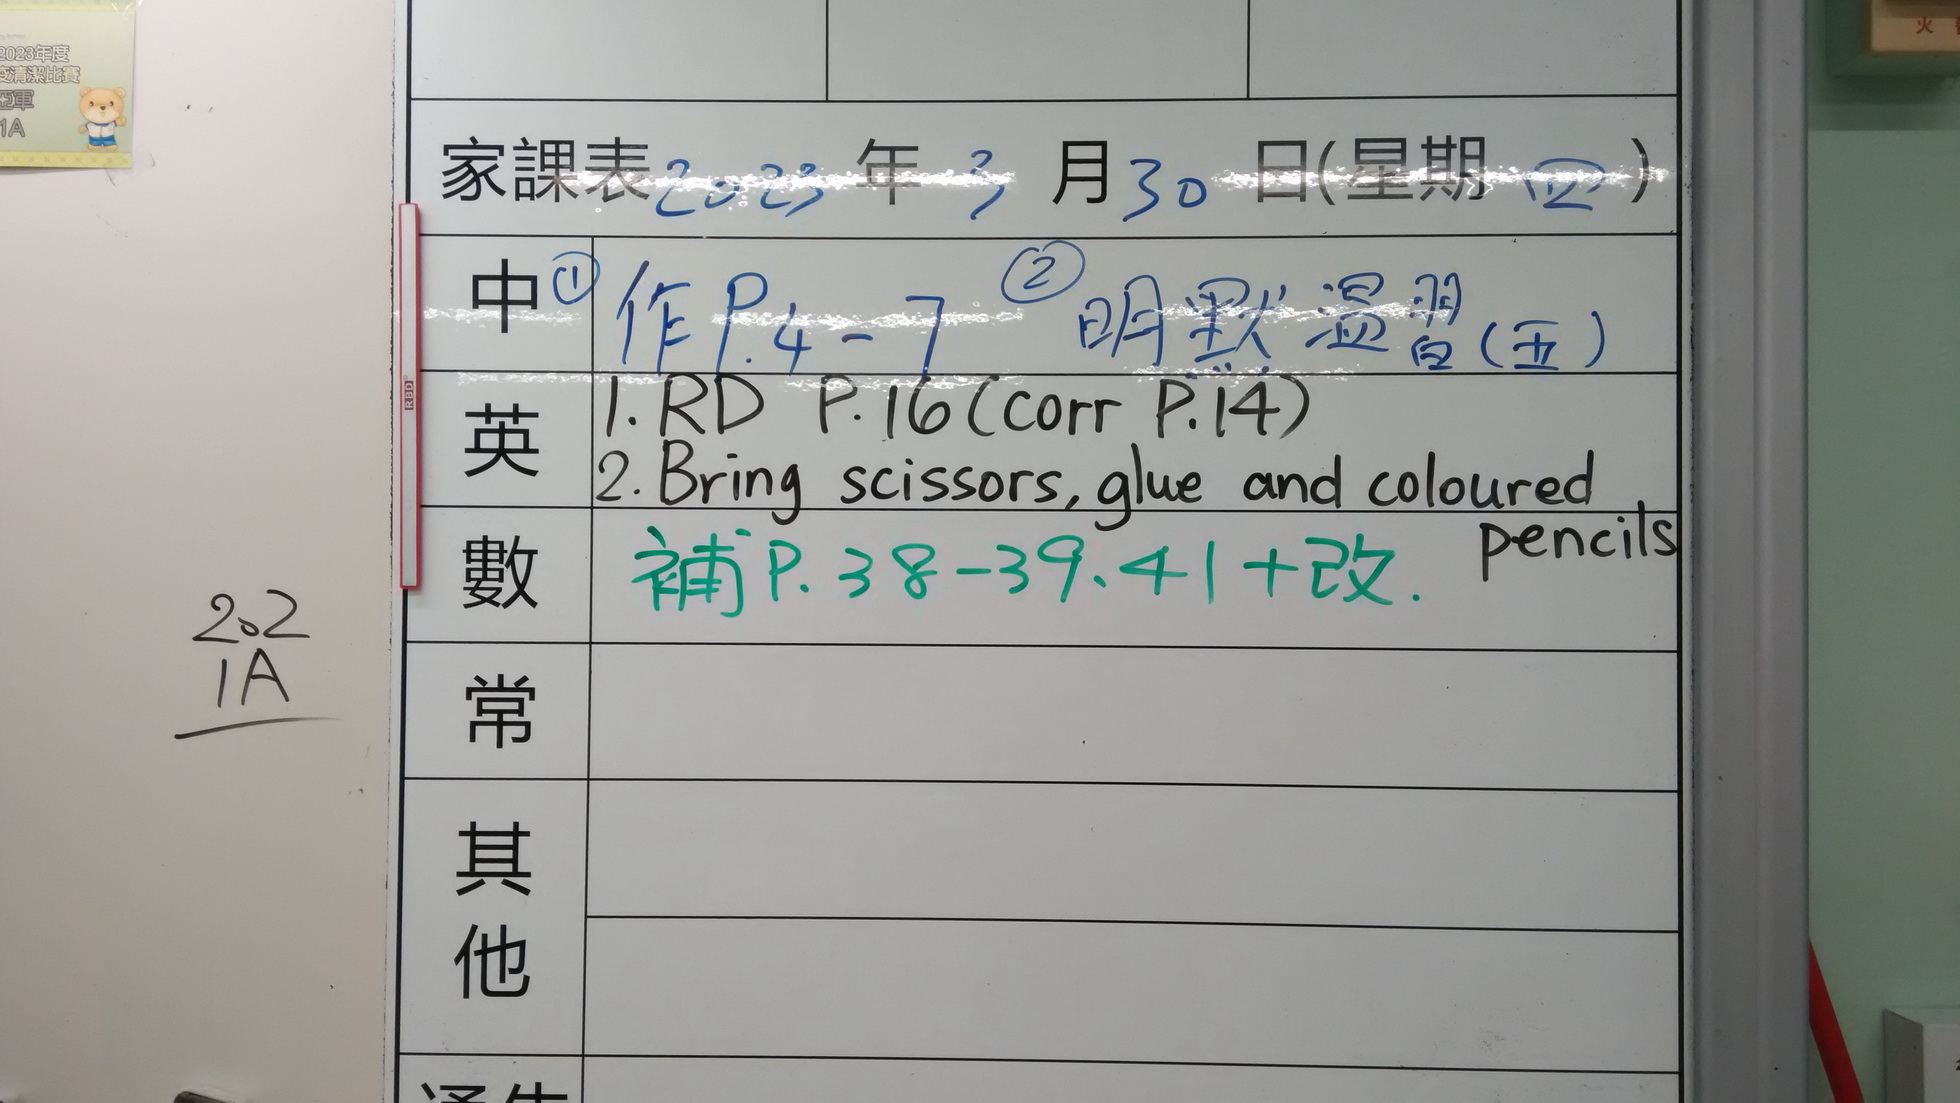 2023年度
清潔比賽
亞軍
1A
火
家課表2023年3月30日(星期四)
中 ① 作P.4-7 ② 明默溫習(五)
英 1. RD P.16 (corr P.14)
2. Bring scissors, glue and coloured
pencils
數 補P.38-39、41+改.
常
其
他
通告
202
1A
RBD